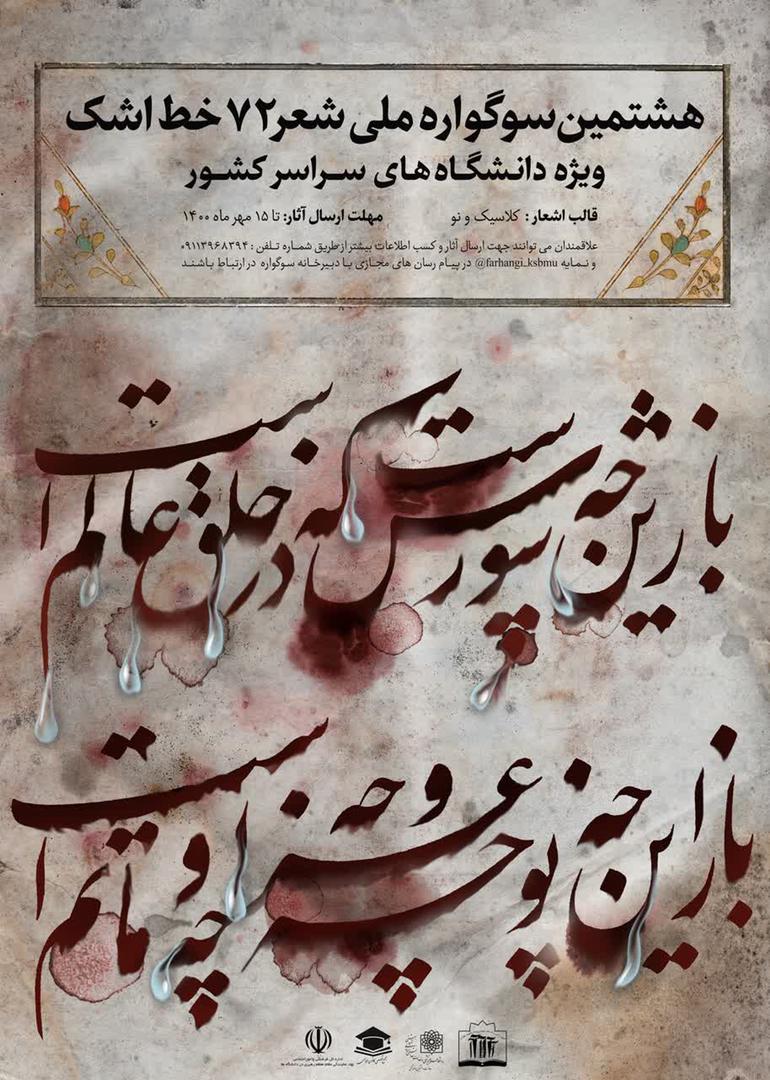 هشتمین سوگواره ملی شعر ۷۲ خط اشک
ویژه دانشگاه های سراسر کشور
قالب اشعار : کلاسیک و نو
مهلت ارسال آثار: تا ۱۵ مهر ماه ۱۴۰۰
علاقمندان می توانند جهت ارسال آثار و کسب اطلاعات بیشتر از طریق شماره تلفن : ۰۹۱۱۳۹۶۸۳۹۴
و نمایه @farhangi_ksbmu در پیام رسان های مجازی با دبیرخانه سوگواره در ارتباط باشند
باز این چه شورش است که در خلق عالم است
باز این چه نوحه و چه عزا و چه ماتم است